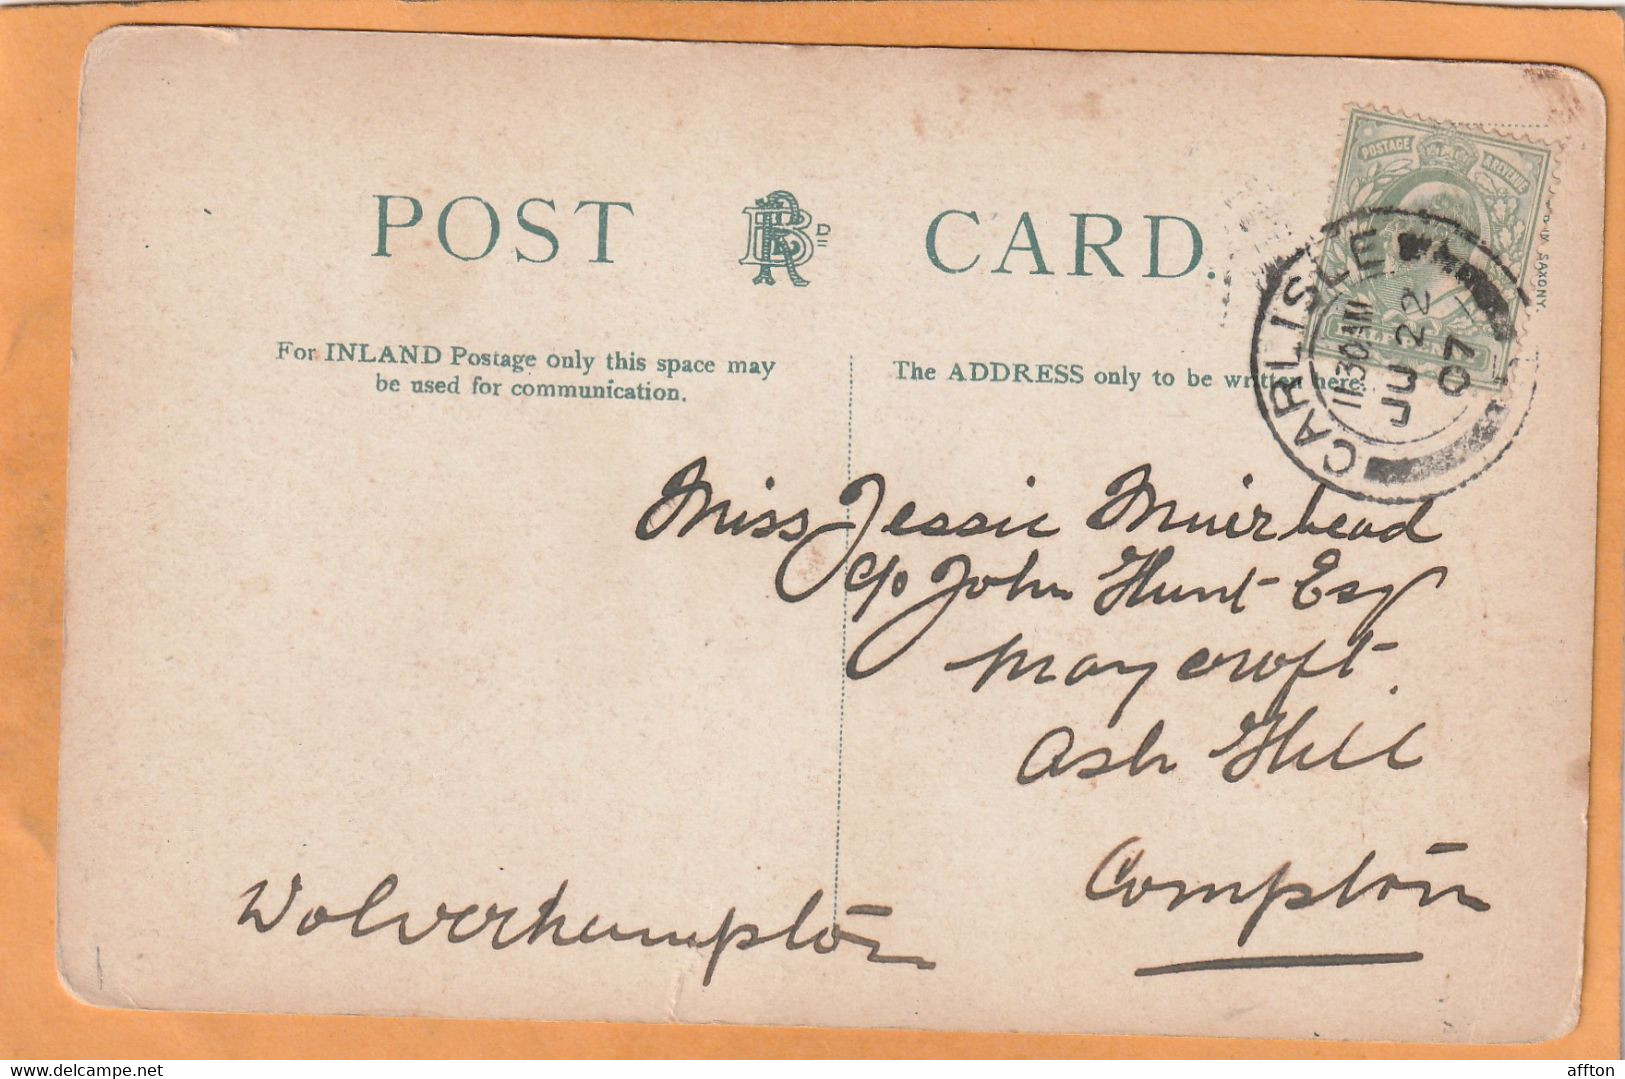 POST CARD.
For INLAND Postage only this space may
be used for communication.
The ADDRESS only to be written here.
POSTAGE & REVENUE
HALFPENNY
SAXONY.
CARLISLE
11.30 AM
JU 22
07
Miss Jessie Muirhead
c/o John Hunt Esq
Maycroft
Ash Hill
Compton
Wolverhampton
delcampe.net
affton